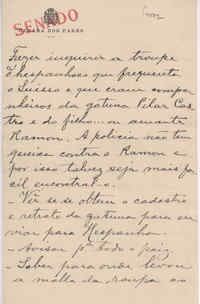 SENADO
CAMARA DOS PARES
Fazer inquerir a troupe
d'hespanhoes que frequenta
o Suisso e que eram compa-
nheiros da gatuna Pilar Cas-
tro e do filho... ou amante
Ramon. A policia não tem
queixa contra o Ramon e
por isso talvez seja mais fa-
cil encontral-o.
- Ver se se obtem o cadastro
e retrato da gatuna para en-
viar para Hespanha.
- Avisar pª todo o paiz
- Saber para onde levou
a malla da roupa